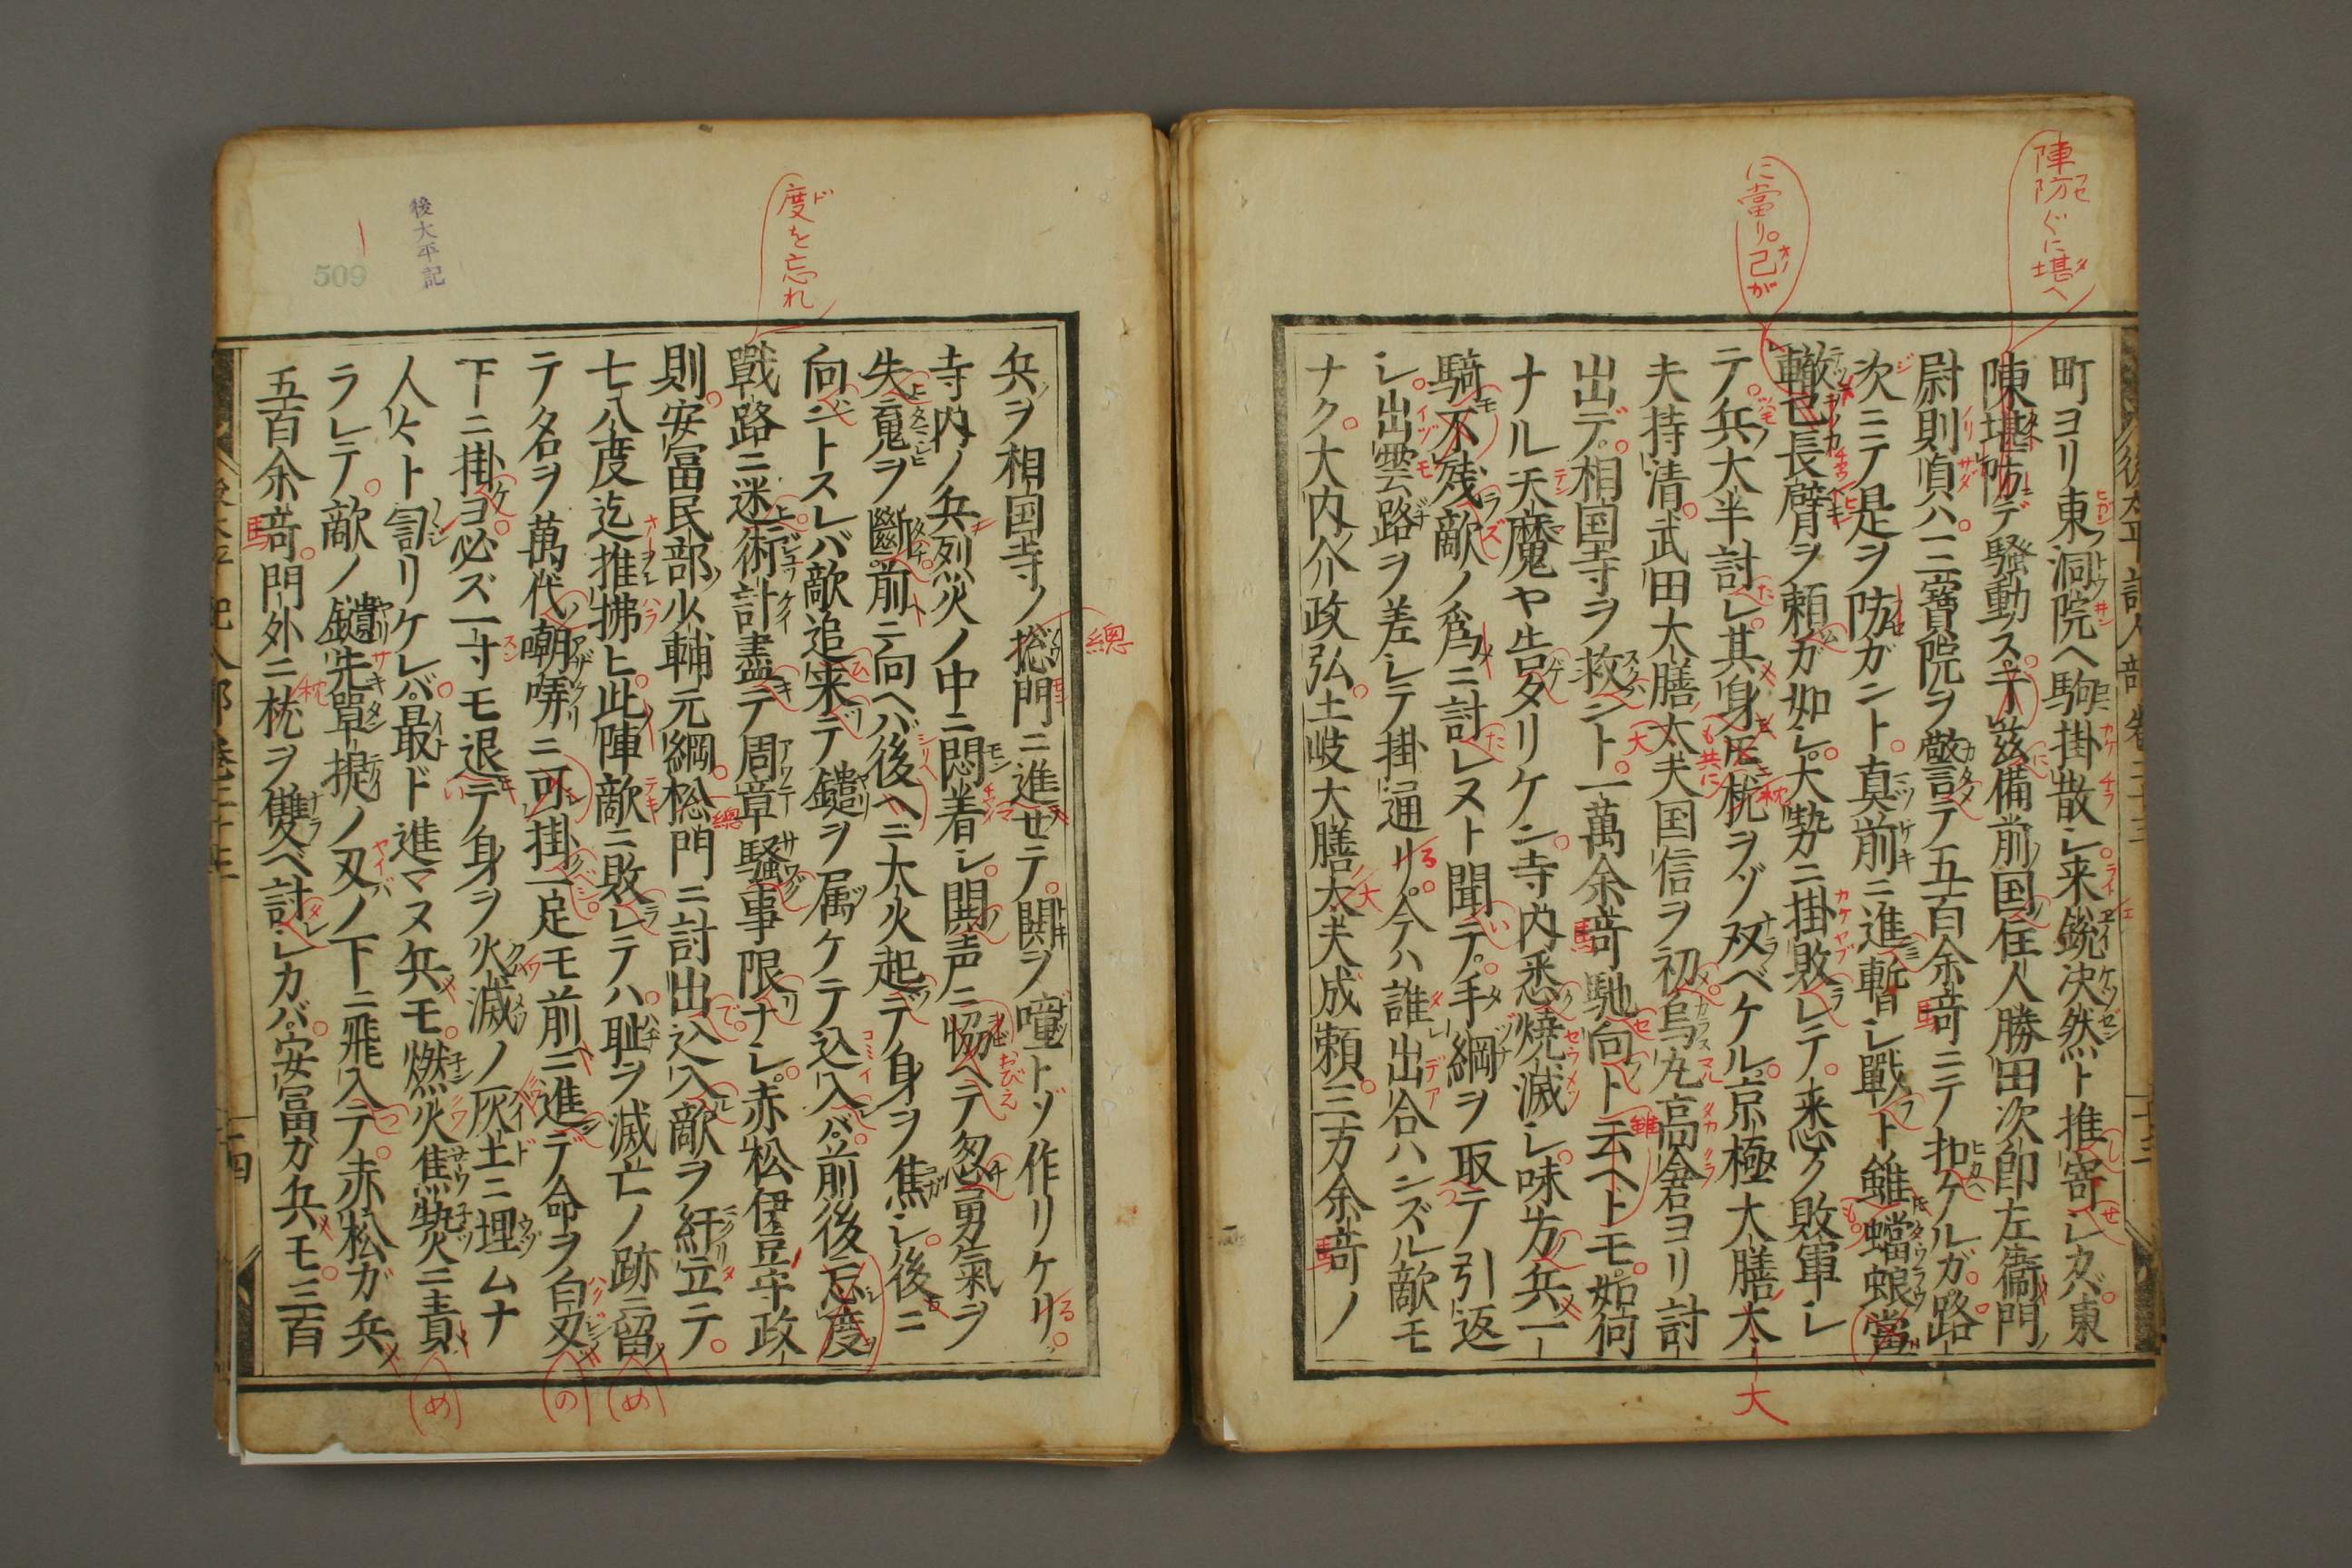 陣防ぐに堪へ
に當り。己が
町ヨリ東洞院ヘ駒掛散シ来鋭決然ト推寄シカバ東
陳堪防デ騒動ス于茲備前国住人勝田次郎左衞門
尉則貞ハ三寶院ヲ警言テ五百余竒ニテ扣ケルガ路
次ニテ是ヲ防ガント真前ニ進暫シ戰ト雖蟷蜋當
轍己長臂ヲ頼ガ如シ大勢ニ掛敗レテ悉ク敗軍シ
テ兵大半討レ其身モ枕ヲゾ双ベケル京極大膳大
夫持清武田大膳太夫国信ヲ初烏丸高倉ヨリ討
出デ相国寺ヲ救ント一萬余竒馳向ト云ヘトモ如何
ナル天魔ヤ告タリケン寺内悉焼滅シ味方兵一
騎不残敵ノ為ニ討レヌト聞テ手綱ヲ取テ引返
シ出雲路ヲ差シテ掛通リ今ハ誰出合ハンズル敵モ
ナク大内介政弘土岐大膳太夫成頼三万余竒ノ
大
後太平記
509
度を忘れ
總
兵ヲ相国寺ノ揔門ニ進セテ鬨ヲ噇トゾ作リケリ
寺内ノ兵烈火ノ中ニ悶着シ鬨声ニ恊ヘテ忽勇氣ヲ
失寃ヲ斷前ニ向ヘバ後ヘニ大火起テ身ヲ焦シ後ニ
向ニトスレバ敵追来テ鑓ヲ属ケテ込入バ前後忘度
戰路ニ迷術計盡テ周章騒事限ナシ赤松伊豆守政
則安冨民部少輔元綱揔門ニ討出込入敵ヲ糺立テ
七八度迄推拂ヒ此陣敵ニ敗レテハ耻ヲ滅亡ノ跡ニ留
テ名ヲ萬代嘲哢ニ可掛一足モ前ニ進デ命ヲ白刄
下ニ掛ヨ必ズ一寸モ退テ身ヲ火滅ノ灰土ニ埋ムナ
人々ト訇リケレバ最ド進マヌ兵モ燃火焦㷱ニ責
ラレテ敵ノ鑓先單提ノ刄ノ下ニ飛入テ赤松ガ兵
五百余竒門外ニ枕ヲ雙ベ討レカバ安冨カ兵モ三百
(め)
(の)
(め)